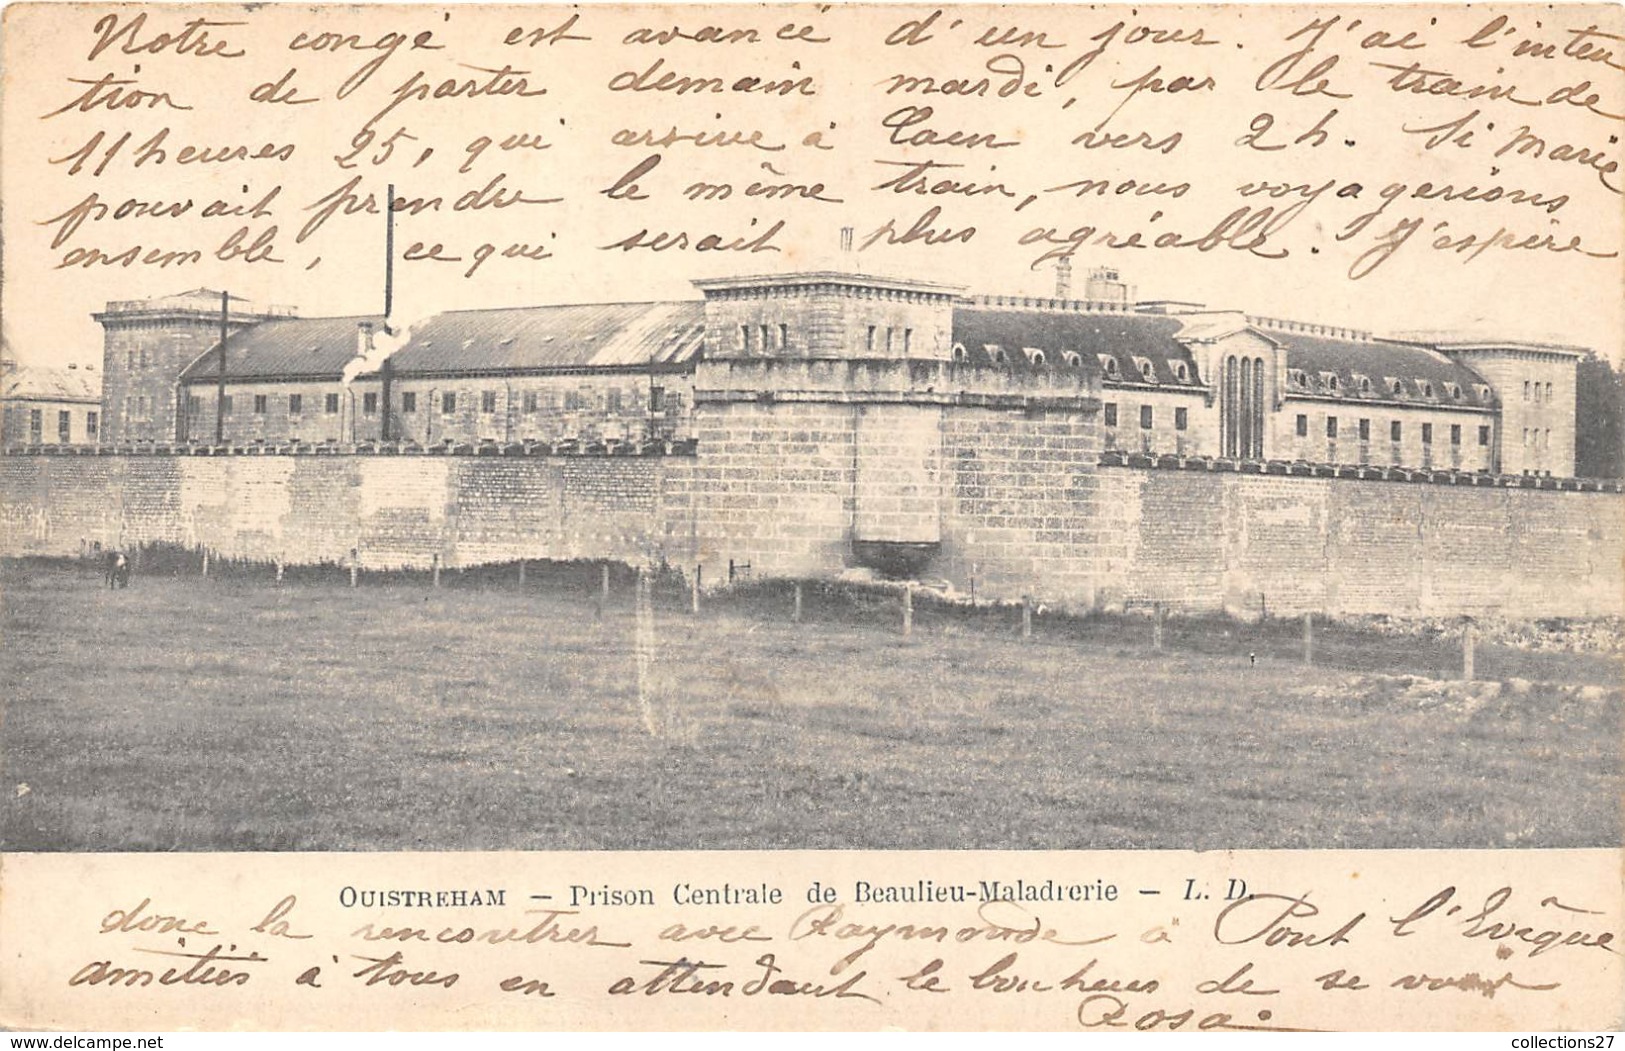 Notre congé est avancé d'un jour. J'ai l'inten
tion de parter demain mardi, par le train de
11 heures 25, qui arrive à Caen vers 2 h. Si Marie
pouvait prendre le même train, nous voyagerions
ensemble, ce qui serait plus agréable. J'espère
OUISTREHAM — Prison Centrale de Beaulieu-Maladrerie — L. D.
donc la rencontrer avec Raymonde à Pont l'Evêque
amitiés à tous en attendant le bonheur de se voir
Rosa.
delcampe.net
collections27